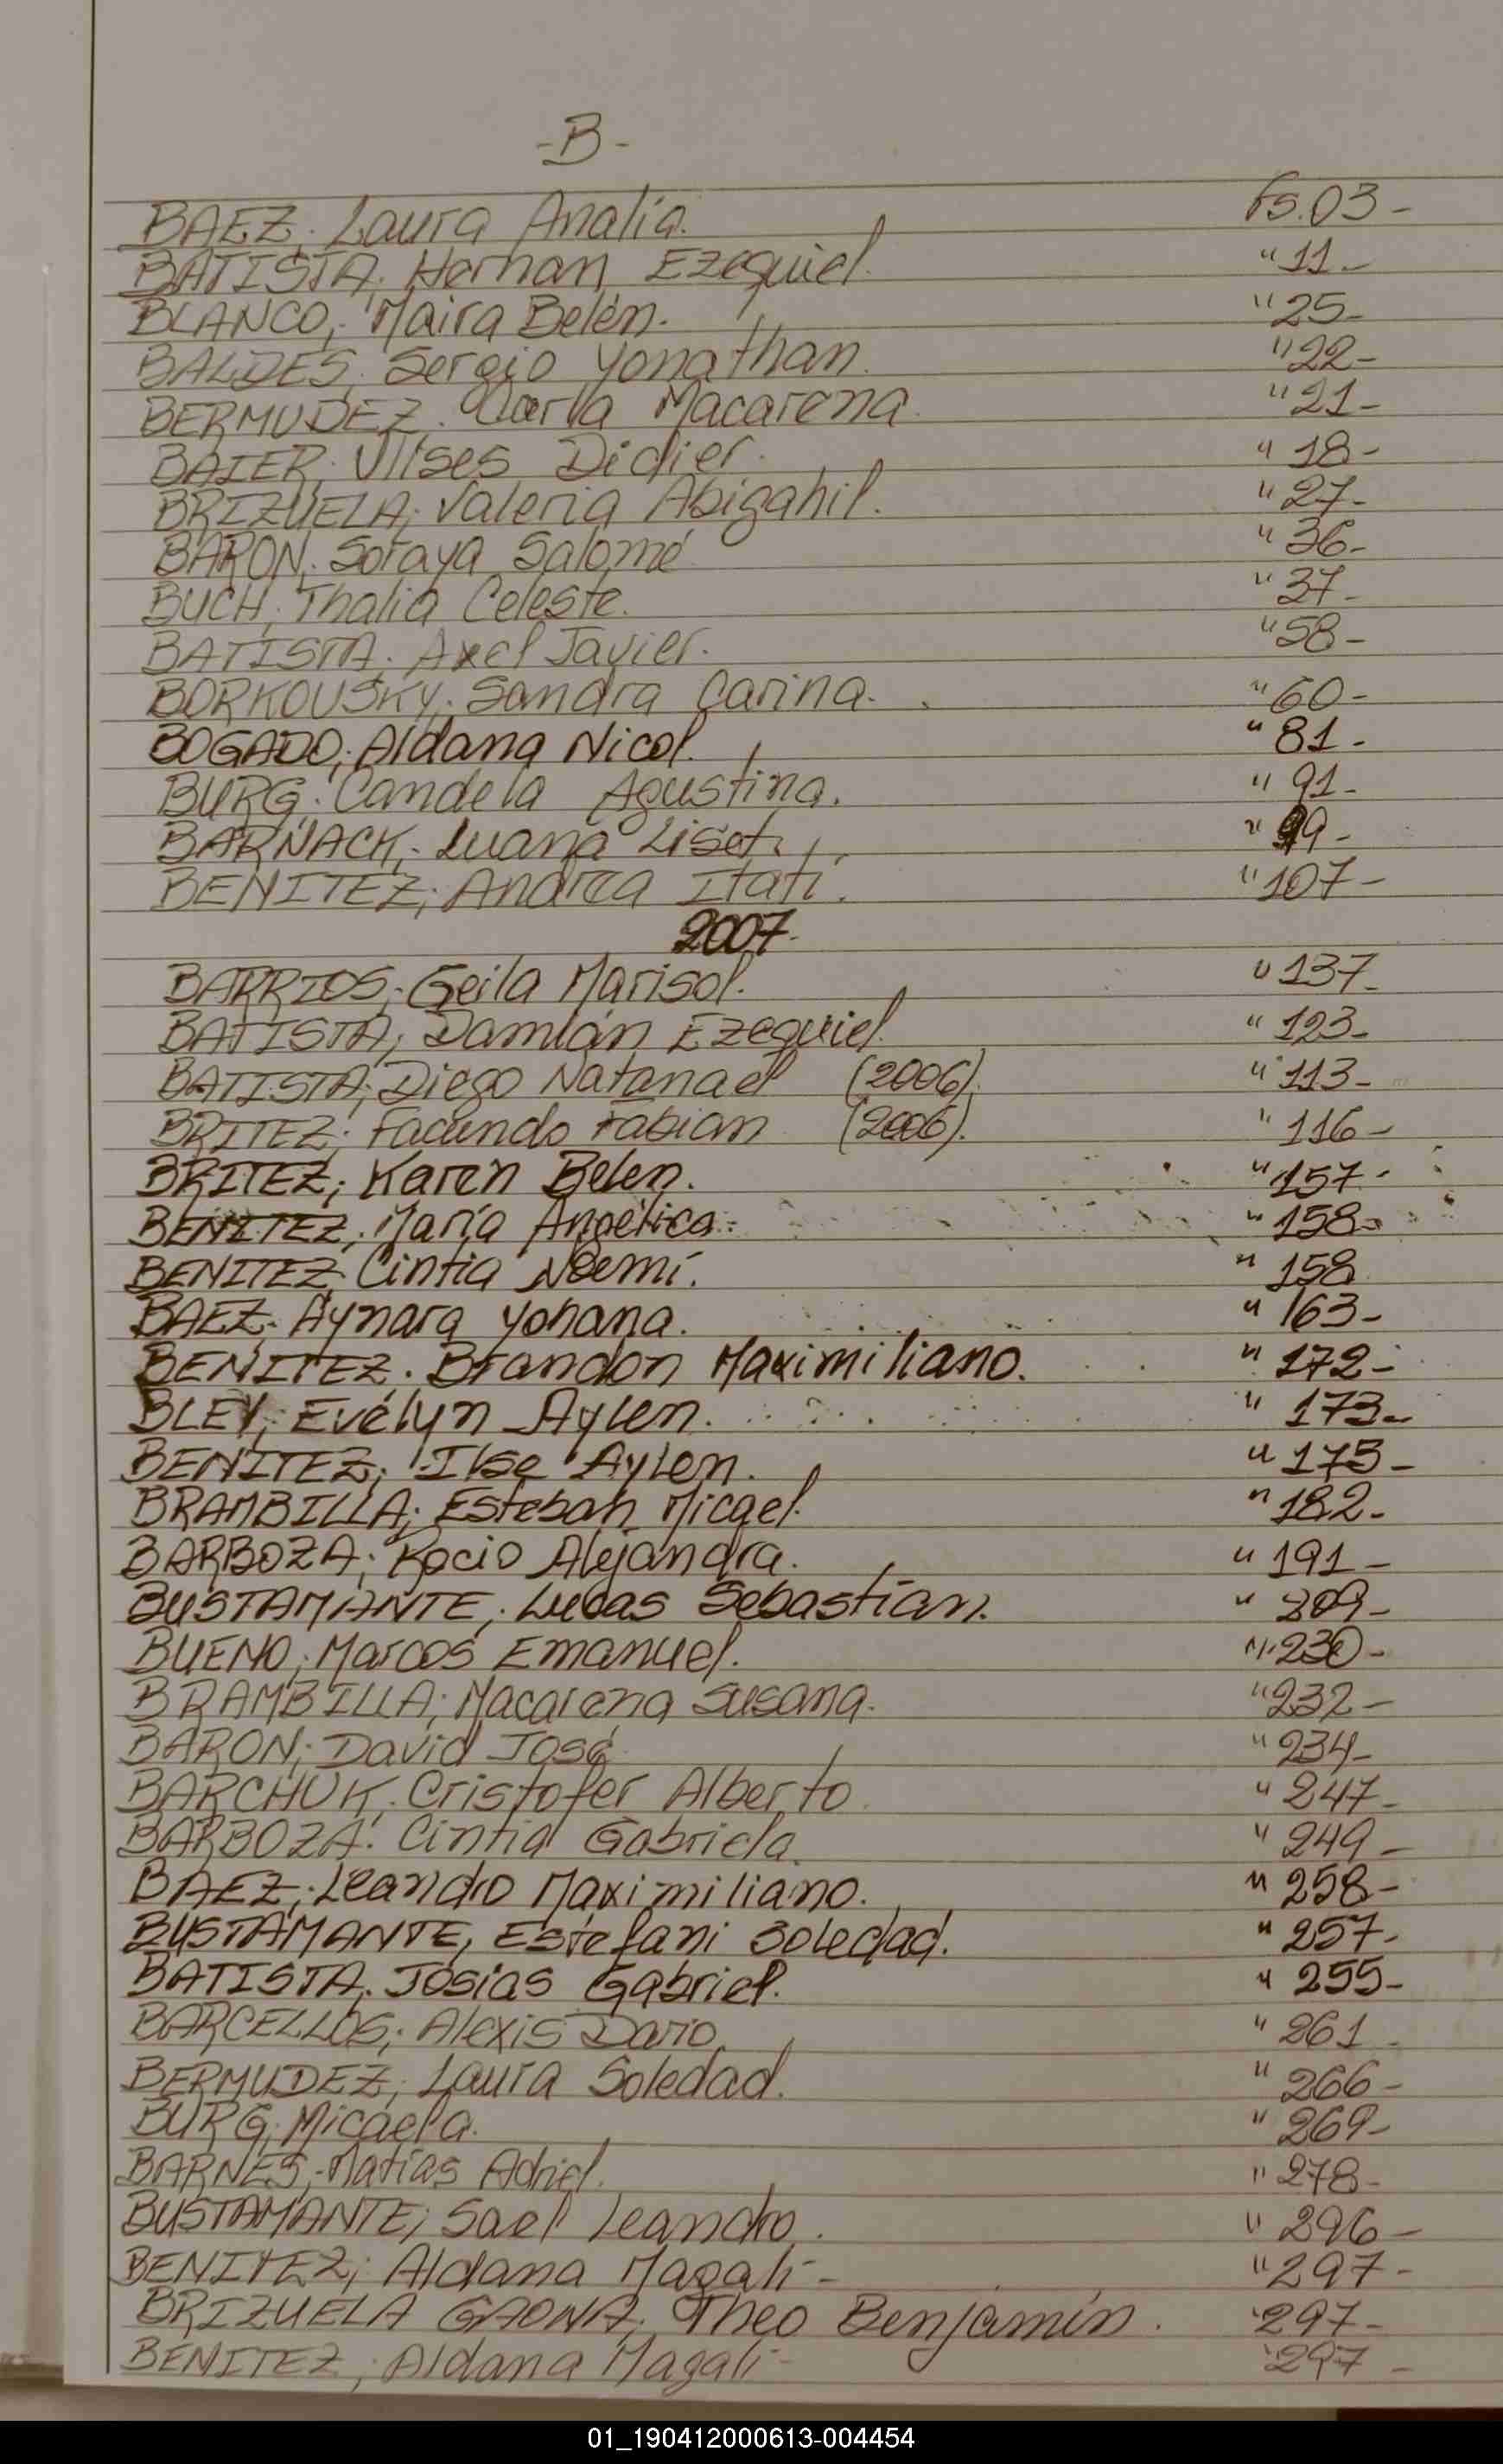 -B-
BAEZ; Laura Analía. Fs.03-
BATISTA; Hernan Ezequiel. " 11-
BLANCO; Maira Belén. " 25-
BALDES; Sergio Yonathan. " 22-
BERMUDEZ. Carla Macarena. " 21-
BAIER; Ulises Didier. " 18-
BRIZUELA; Valeria Abigahil. " 27-
BARON; Soraya Salomé " 36-
BUCH; Thalia Celeste. " 37-
BATISTA; Axel Javier. " 58-
BORKOUSKY; Sandra Carina. " 60-
BOGADO; Aldana Nicol. " 81-
BURG; Candela Agustina. " 91-
BARNACK; Luana Liset. " 99-
BENITEZ; Andrea Itatí. " 107-
2007-
BARRIOS; Geila Marisol. " 137-
BATISTA; Damián Ezequiel. " 123-
BATISTA; Diego Natanael (2006). " 113-
BRITEZ; Facundo Fabian (2006). " 116-
BRITEZ; Karen Belen. " 157-
BENITEZ; María Angélica. " 158-
BENITEZ; Cintia Noemí. " 158
BAEZ. Aynara Yohana. " 163-
BENITEZ. Brandon Maximiliano. " 172-
BLEY; Evelyn Aylen. " 173-
BENITEZ; Ilse Aylen. " 175-
BRAMBILLA; Esteban Micael. " 182-
BARBOZA; Rocio Alejandra. " 191-
BUSTAMANTE; Lucas Sebastían. " 209-
BUENO; Marcos Emanuel. " 230-
BRAMBILLA; Macarena Susana. " 232-
BARON; David José " 234-
BARCHUK; Cristofer Alberto. " 247-
BARBOZA; Cintia Gabriela. " 249-
BAEZ; Leandro Maximiliano. " 258-
BUSTAMANTE, Estefani Soledad. " 257-
BATISTA; Josias Gabriel. " 255-
BARCELLOS; Alexis Dario. " 261-
BERMUDEZ; Laura Soledad. " 266-
BURG; Micaela. " 269-
BARNES; Matías Adriel. " 278-
BUSTAMANTE; Sael Leandro. " 296-
BENITEZ; Aldana Magali- " 297-
BRIZUELA GAONA; Theo Benjamín. " 297-
BENITEZ; Aldana Magali- " 297-
01_190412000613-004454